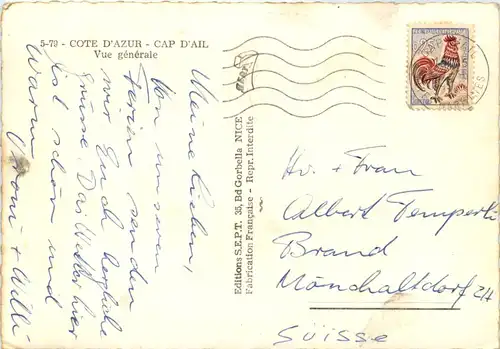 5-79 - COTE D'AZUR - CAP D'AIL
Vue générale
Meine Lieben,
Von unseren
Ferien senden
wir Euch herzliche
Grüsse. Das Wetter hier
ist schön und
warm
Vroni + Willi
Editions S.E.P.T. 35, Bd Gorbella NICE
Fabrication Française - Repr. Interdite
Hr. + Frau
Albert Temperli
Brand
Mönchaltdorf ZH
Süisse